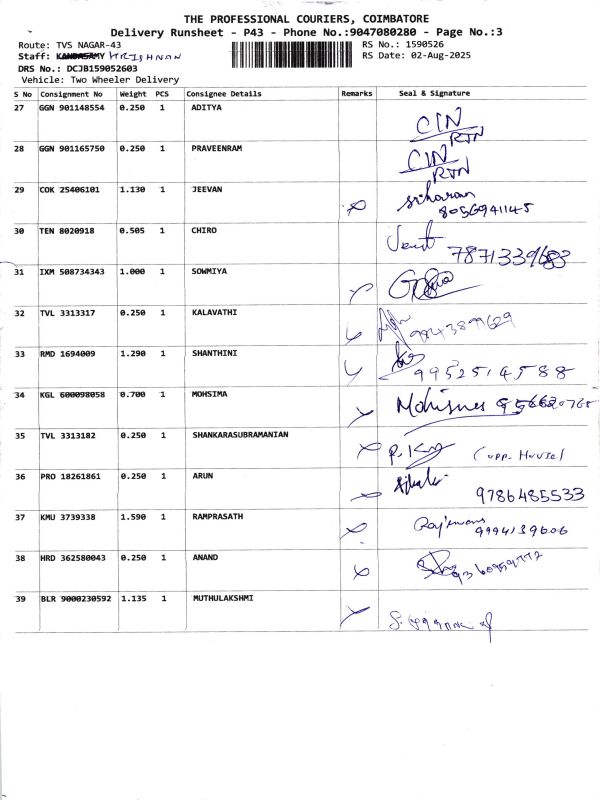 THE PROFESSIONAL COURIERS, COIMBATORE
Delivery Runsheet - P43 - Phone No.:9047080280 - Page No.:3
Route: TVS NAGAR-43 RS No.: 1590526
Staff: KANDASAMY KRISHNAN RS Date: 02-Aug-2025
DRS No.: DCJB159052603
Vehicle: Two Wheeler Delivery
S No Consignment No Weight PCS Consignee Details Remarks Seal & Signature
27 GGN 901148554 0.250 1 ADITYA CIN RTN
28 GGN 901165750 0.250 1 PRAVEENRAM CIN RTN
29 COK 25406101 1.130 1 JEEVAN sriharan
8056941145
30 TEN 8020918 0.505 1 CHIRO
31 IXM 508734343 1.000 1 SOWMIYA
32 TVL 3313317 0.250 1 KALAVATHI
33 RMD 1694009 1.290 1 SHANTHINI 9952514588
34 KGL 600098058 0.700 1 MOHSIMA
35 TVL 3313182 0.250 1 SHANKARASUBRAMANIAN (opp. House)
36 PRO 18261861 0.250 1 ARUN
9786485533
37 KMU 3739338 1.590 1 RAMPRASATH
9994139606
38 HRD 362580043 0.250 1 ANAND
39 BLR 9000230592 1.135 1 MUTHULAKSHMI